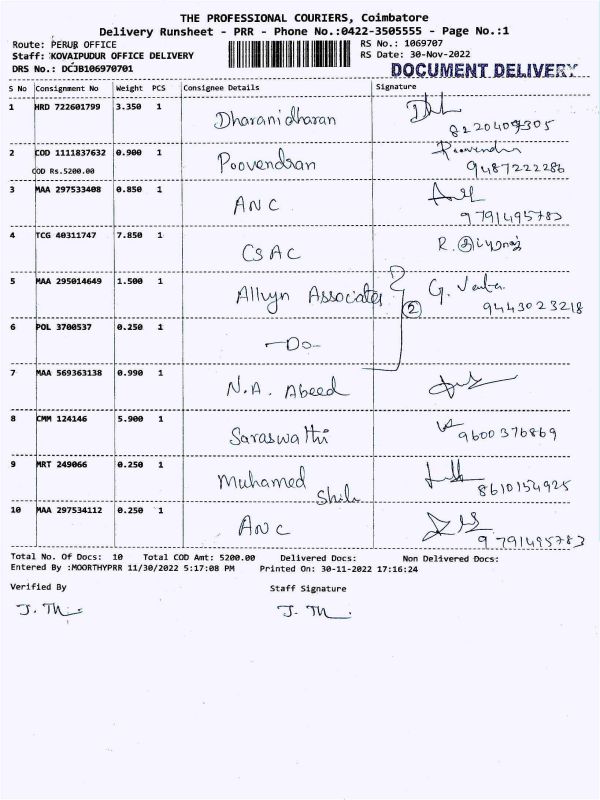 THE PROFESSIONAL COURIERS, Coimbatore
Delivery Runsheet - PRR - Phone No.:0422-3505555 - Page No.:1
Route: PERUR OFFICE
RS No.: 1069707
Staff: KOVAIPUDUR OFFICE DELIVERY
RS Date: 30-Nov-2022
DRS No.: DCJB106970701
DOCUMENT DELIVERY
S No Consignment No Weight PCS Consignee Details Signature
1 HRD 722601799 3.350 1 Dharanidharan
8220409305
2 COD 1111837632 0.900 1 Poovendran Poovendra
COD Rs.5200.00 9487222286
3 MAA 297533408 0.850 1 ANC
9791495783
4 TCG 40311747 7.850 1 CSAC R.
5 MAA 295014649 1.500 1 Allvyn Associates 2 G.
9443023218
6 POL 3700537 0.250 1 -Do-
7 MAA 569363138 0.990 1 N.A. Abeed
8 CMM 124146 5.900 1 Saraswathi 9600376869
9 MRT 249066 0.250 1 Muhamed
8610154925
10 MAA 297534112 0.250 1 ANC
9791495783
Total No. Of Docs: 10 Total COD Amt: 5200.00 Delivered Docs: Non Delivered Docs:
Entered By :MOORTHYPRR 11/30/2022 5:17:08 PM Printed On: 30-11-2022 17:16:24
Verified By Staff Signature